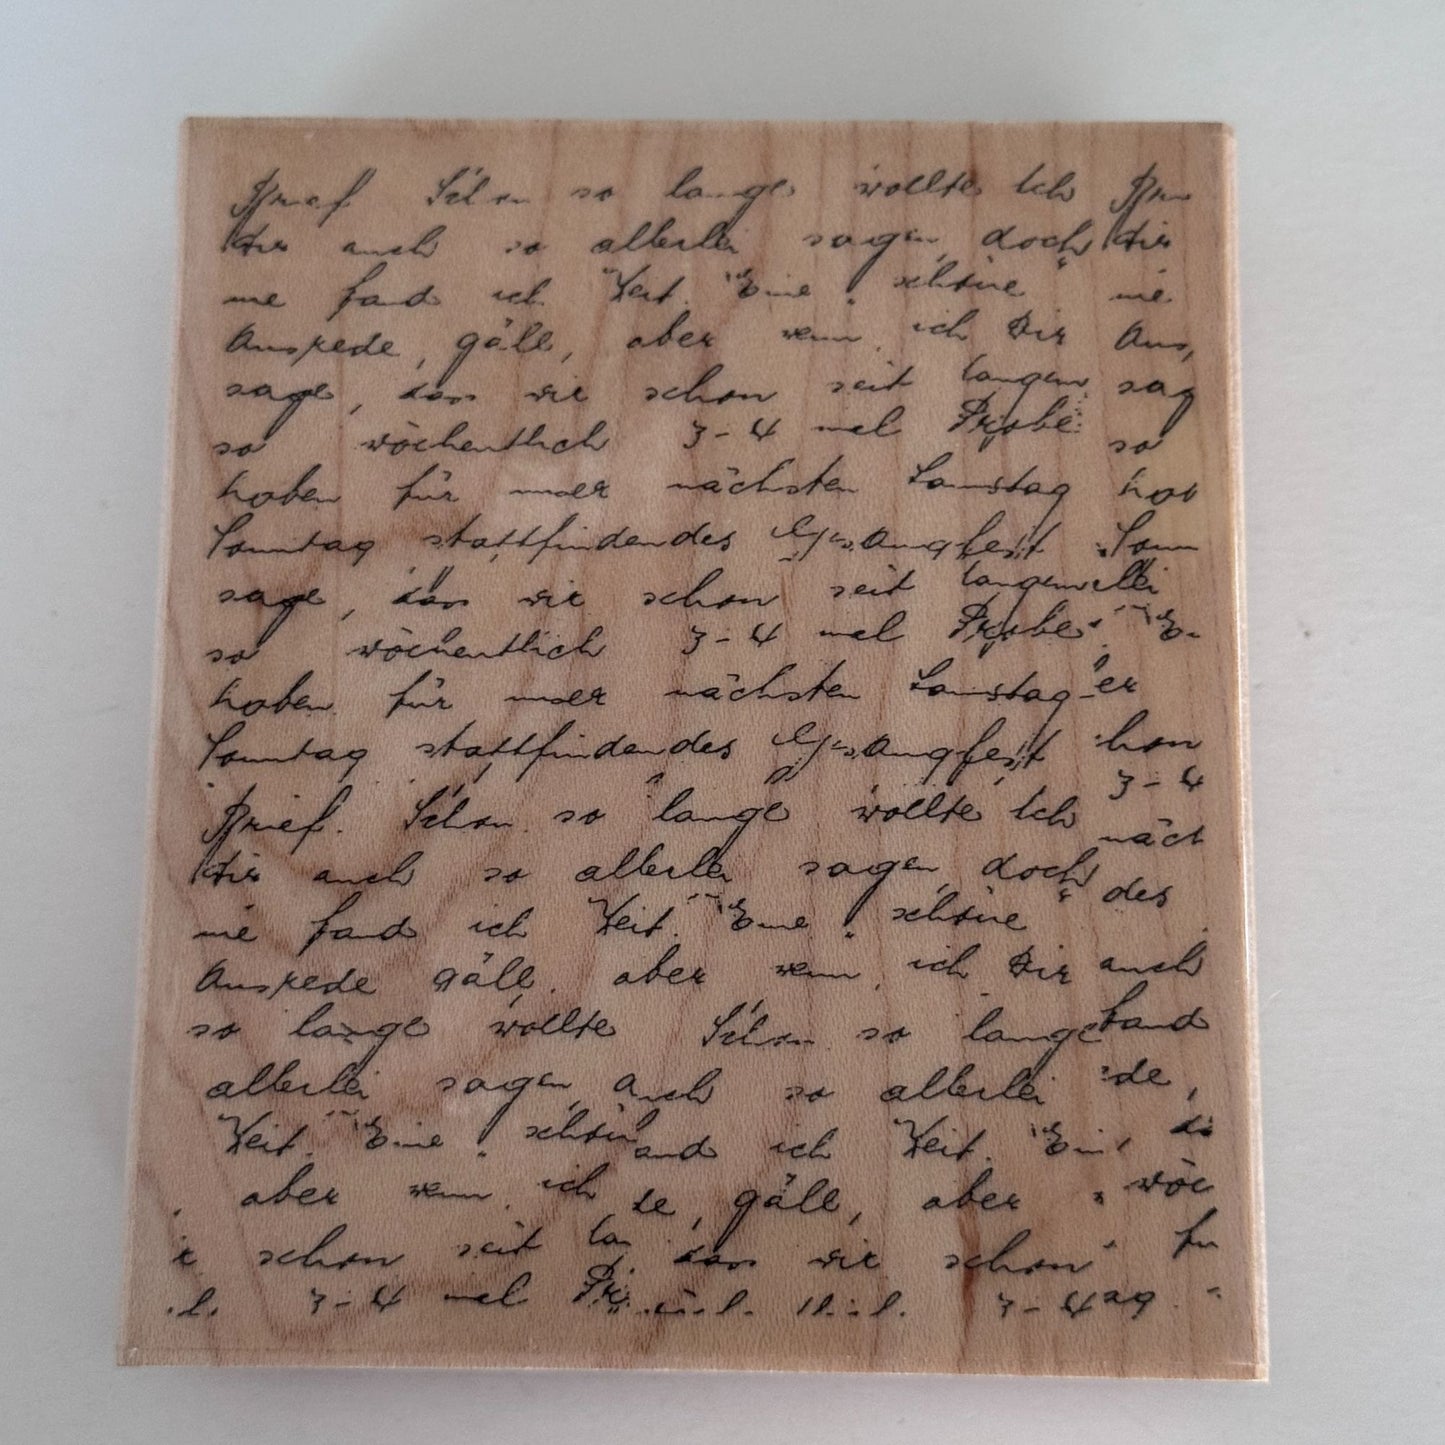 Brief. Schon so lange wollte Ich
Dir auch so allerlei sagen, doch Dir
nie fand ich Zeit. Eine schöne nie
Ausrede, gäll, aber wenn ich Dir Aus
sage, dass wir schon seit langem sag
so wöchentlich 3-4 mal Probe so
haben für unser nächsten Samstag hab
Sonntag stattfindendes Gesangfest Sonn
sage, dass wir schon seit langem llei
so wöchentlich 3-4 mal Probe
haben für unser nächsten Samstag er
Sonntag stattfindendes Gesangfest hon
3-4
Brief. Schon so lange wollte Ich
näch
Dir auch so allerlei sagen, doch des
nie fand ich Zeit. Eine schöne
Ausrede gäll, aber wenn ich Dir auch
so lange wollte Schon so lange fand
allerlei sagen, auch so allerlei de,
Zeit. Eine schön and ich Zeit. Ein
aber wenn ich de, gäll, aber wöc
schon seit lan dass wir schon fü
3-4 mal Pr 3-4 ag